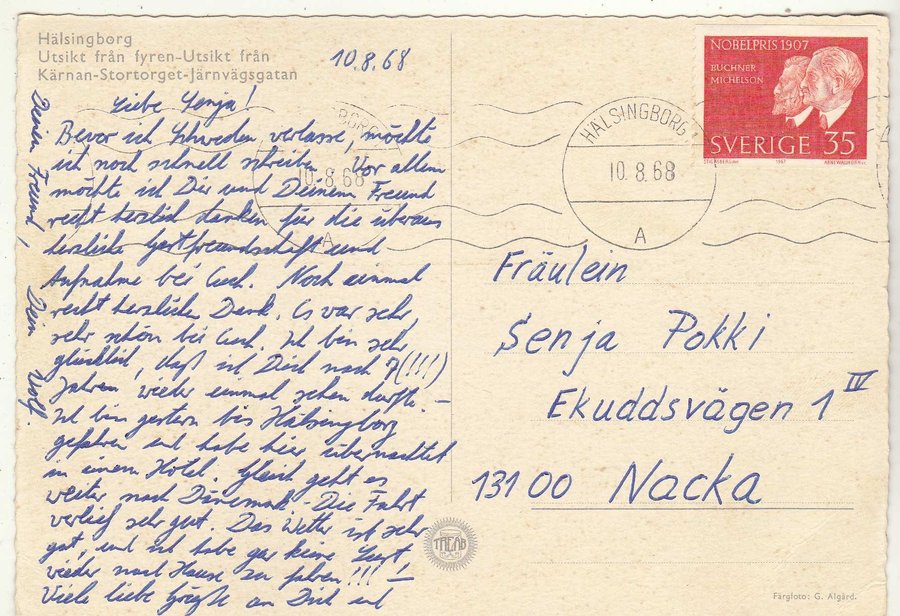 Hälsingborg
Utsikt från fyren-Utsikt från
Kärnan-Stortorget-Järnvägsgatan
10.8.68
Liebe Senja!
Bevor ich Schweden verlasse, möchte
ich noch schnell schreiben. Vor allem
möchte ich Dir und Deinem Freund
recht herzlich danken für die überaus
herzliche Gastfreundschaft und
Aufnahme bei Euch. Noch einmal
recht herzlichen Dank. Es war sehr,
sehr schön bei Euch. Ich bin sehr
glücklich, daß ich Dich nach 7(!!!)
Jahren wieder einmal sehen durfte. –
Ich bin gestern bis Hälsingborg
gefahren und habe hier übernachtet
in einem Hotel. Gleich geht es
weiter nach Dänemark. Die Fahrt
verlief sehr gut. Das Wetter ist sehr
gut, und ich habe gar keine Lust
wieder nach Hause zu fahren!!! –
Viele liebe Grüße an Dich und
Deinen Freund, Dein Wolf.
NOBELPRIS 1907
BUCHNER
MICHELSON
SVERIGE 35
1967
HÄLSINGBORG
10.8.68
A
BORG
10.8.68
A
Fräulein
Senja Pokki
Ekuddsvägen 1 IV
13100 Nacka
Färgfoto: G. Algård.